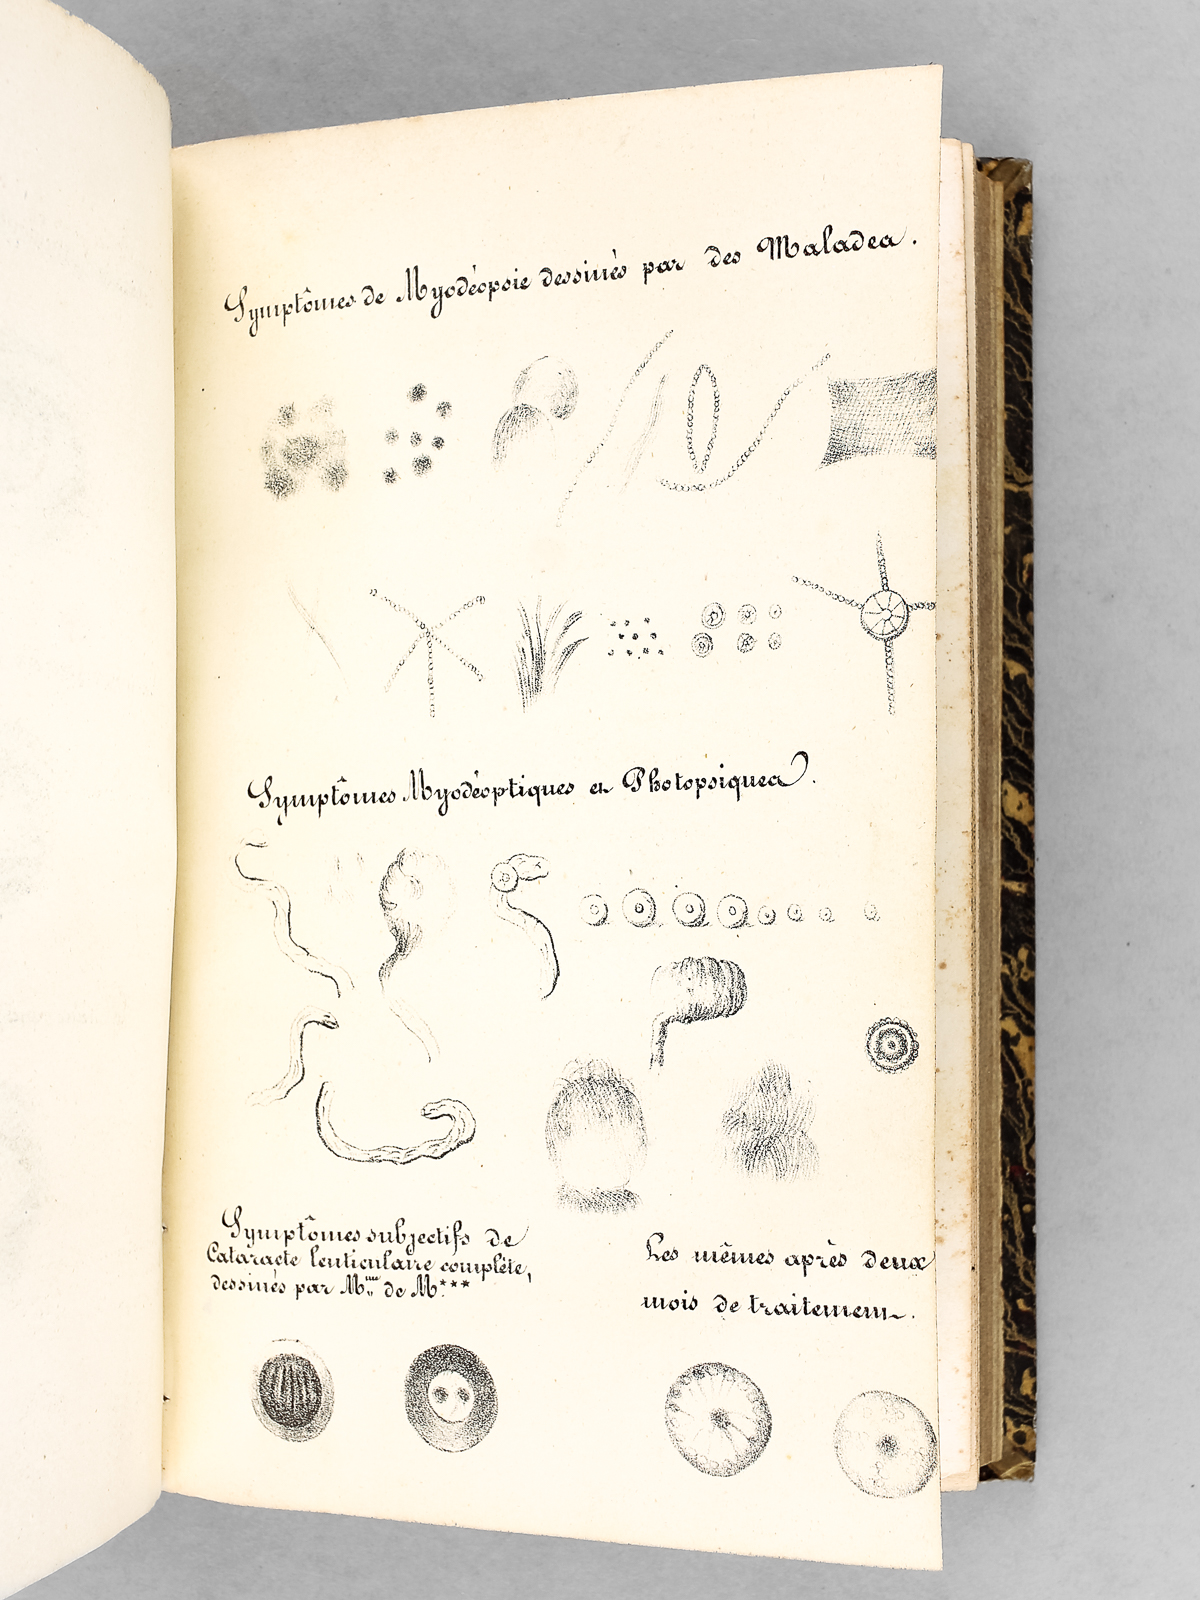 Symptômes de Myodéopsie dessinés par des Malades.
Symptômes Myodéoptiques et Photopsiques.
Symptômes subjectifs de
Cataracte lenticulaire complète,
dessinés par M.me de M.***
Les mêmes après deux
mois de traitement.